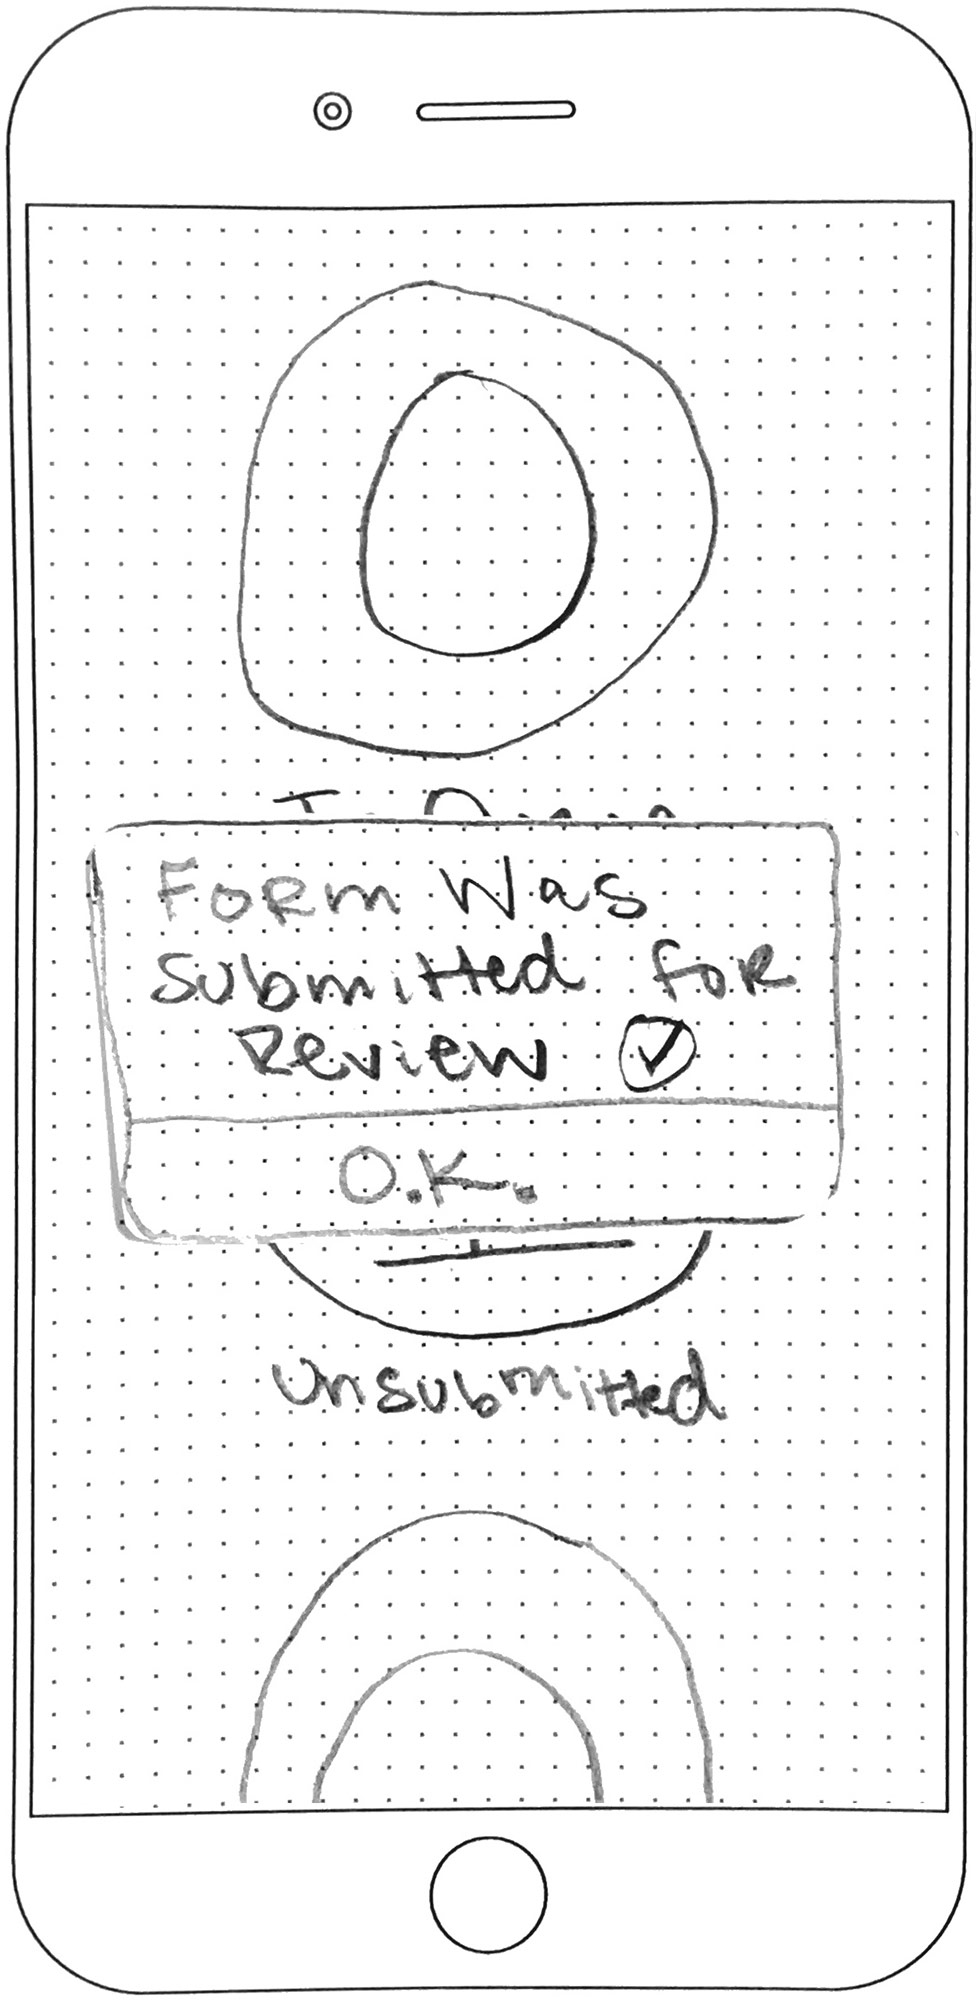 Form Was
Submitted for
Review
O.K.
Unsubmitted